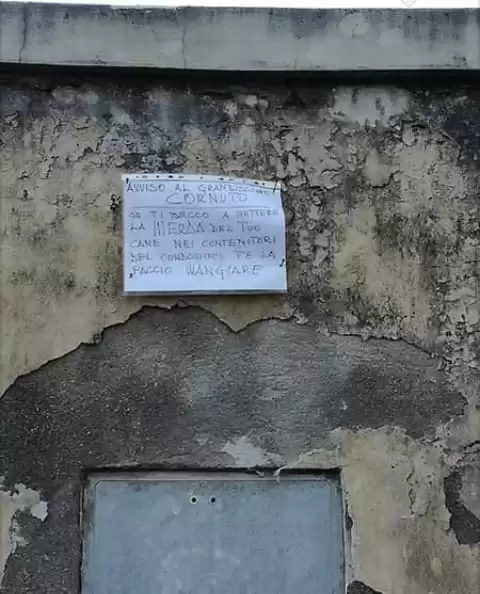 AVVISO AL GRANDISSIMO
CORNUTO
SE TI BECCO A METTERE
LA MERDA DEL TUO
CANE NEI CONTENITORI
DEL CONDOMINIO TE LA
FACCIO MANGIARE